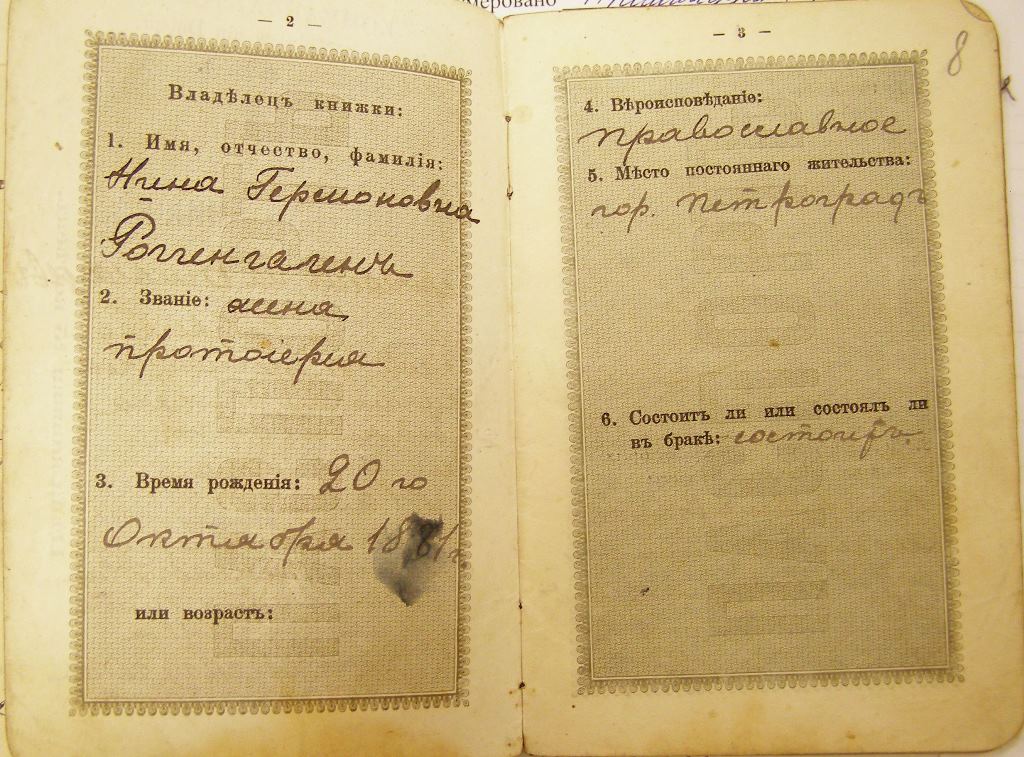 мѣровано
— 2 —
Владѣлецъ книжки:
1. Имя, отчество, фамилія:
Нина Гермоновна
Роггенгагенъ
2. Званіе: жена
протоіерея
3. Время рожденія: 20 го
Октября 1881 г.
или возрастъ:
— 3 —
8
4. Вѣроисповѣданіе:
православное
5. Мѣсто постояннаго жительства:
гор. Петроградъ
6. Состоитъ ли или состоялъ ли
въ бракѣ: состоитъ